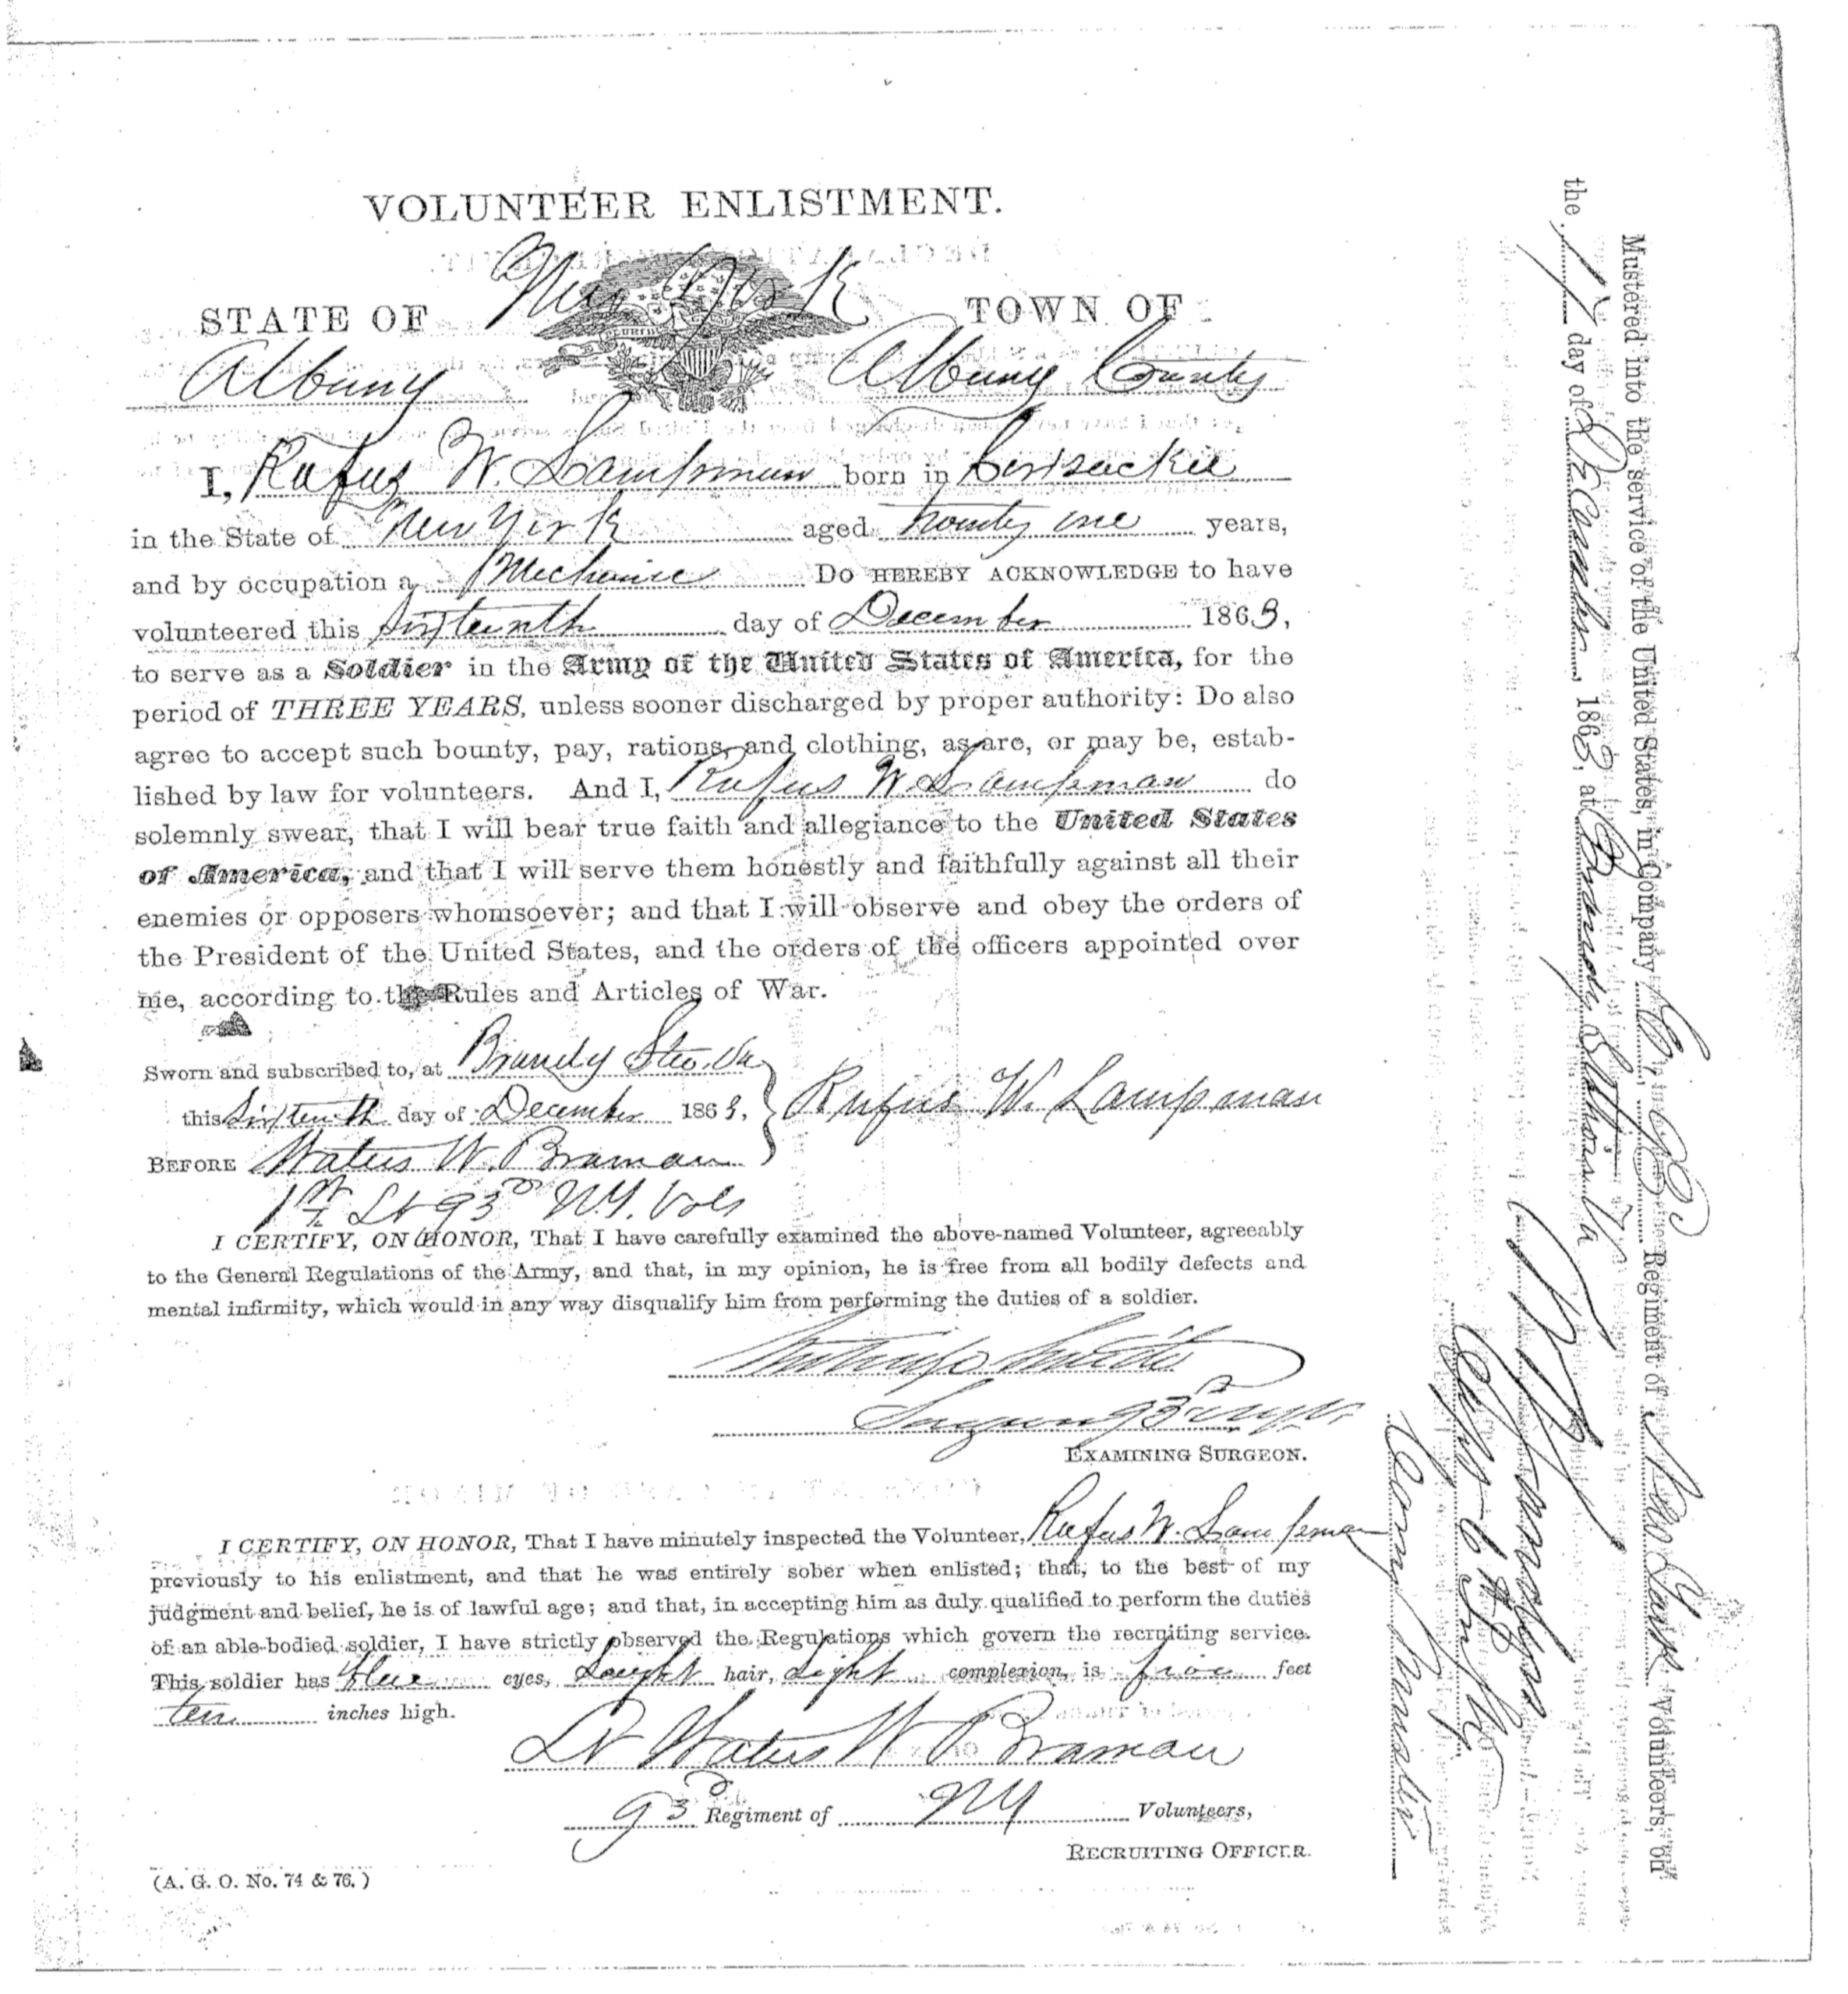 VOLUNTEER ENLISTMENT.
STATE OF New York TOWN OF
Albany Albany County
I, Rufus W. Lampman born in Coxsackie
in the State of New York aged twenty one years,
and by occupation a Mechanic Do HEREBY ACKNOWLEDGE to have
volunteered this Sixteenth day of December 1863,
to serve as a Soldier in the Army of the United States of America, for the
period of THREE YEARS, unless sooner discharged by proper authority: Do also
agree to accept such bounty, pay, rations, and clothing, as are, or may be, estab-
lished by law for volunteers. And I, Rufus W. Lampman do
solemnly swear, that I will bear true faith and allegiance to the United States
of America, and that I will serve them honestly and faithfully against all their
enemies or opposers whomsoever; and that I will observe and obey the orders of
the President of the United States, and the orders of the officers appointed over
me, according to the Rules and Articles of War.
Sworn and subscribed to, at Brandy Sta. Va
this Sixteenth day of December 1863, Rufus W. Lampman
BEFORE Waters W. Braman
1st Lt 93d N.Y. Vols
I CERTIFY, ON HONOR, That I have carefully examined the above-named Volunteer, agreeably
to the General Regulations of the Army, and that, in my opinion, he is free from all bodily defects and
mental infirmity, which would in any way disqualify him from performing the duties of a soldier.
Surgeon 93d
EXAMINING SURGEON.
I CERTIFY, ON HONOR, That I have minutely inspected the Volunteer, Rufus W. Lampman
previously to his enlistment, and that he was entirely sober when enlisted; that, to the best of my
judgment and belief, he is of lawful age; and that, in accepting him as duly qualified to perform the duties
of an able-bodied soldier, I have strictly observed the Regulations which govern the recruiting service.
This soldier has blue eyes, Laight hair, Light complexion, is five feet
ten inches high.
Lt Waters W Braman
93d Regiment of NY Volunteers,
RECRUITING OFFICER.
(A. G. O. No. 74 & 76.)
Mustered into the service of the United States, in Company Regiment of New York Volunteers, on
the 17 day of December, 1863, at Brandy Station Va